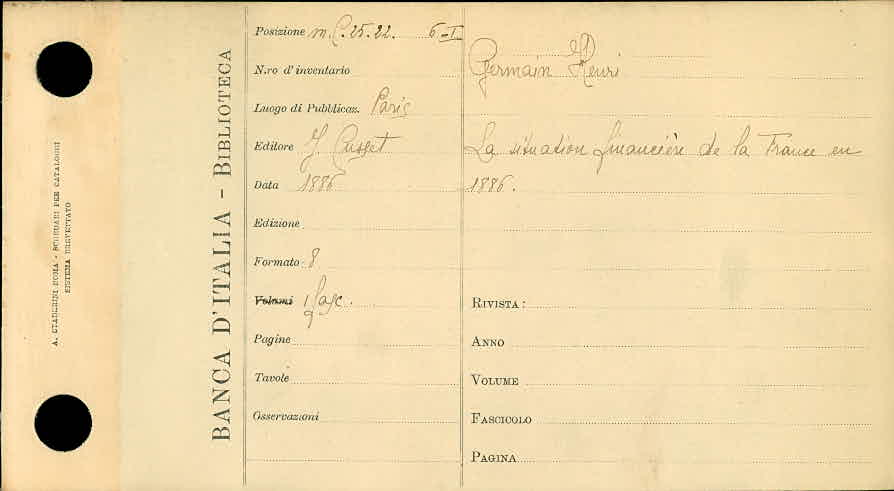 A. STADERINI-ROMA - SCHEDARI PER CATALOGHI
SISTEMA BREVETTATO
BANCA D'ITALIA - BIBLIOTECA
Posizione m. C. 25. 22. 6-I
N.ro d'inventario
Luogo di Pubblicaz. Paris
Editore
Data 1886
Edizione
Formato 8
Volumi 1 fasc.
Pagine
Tavole
Osservazioni
Germain Henri
La situation financière de la France en
1886.
RIVISTA:
ANNO
VOLUME
FASCICOLO
PAGINA